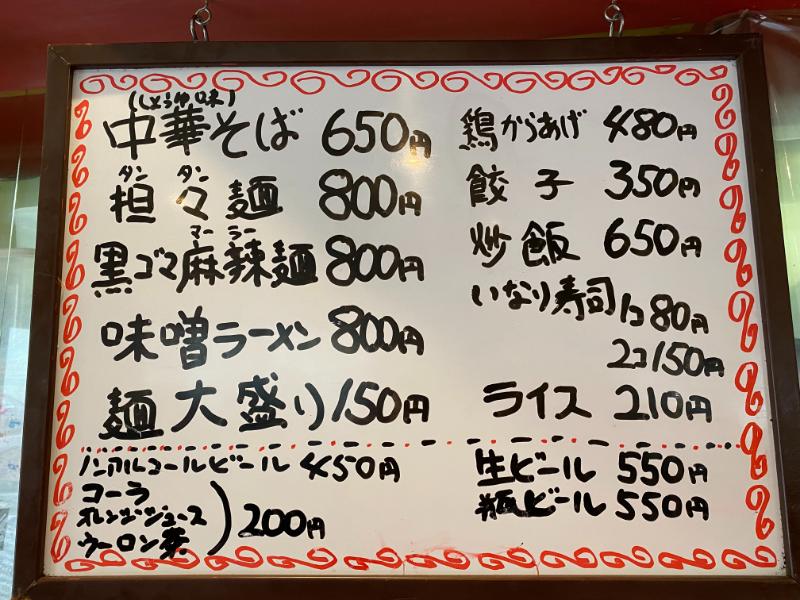 (しょうゆ味)
中華そば 650円
タン タン
担々麺 800円
マー ラー
黒ゴマ麻辣麺 800円
味噌ラーメン 800円
麺大盛り 150円
鶏からあげ 480円
餃子 350円
炒飯 650円
いなり寿司 1コ80円
2コ150円
ライス 210円
ノンアルコールビール 450円
コーラ
オレンジジュース
ウーロン茶
)200円
生ビール 550円
瓶ビール 550円